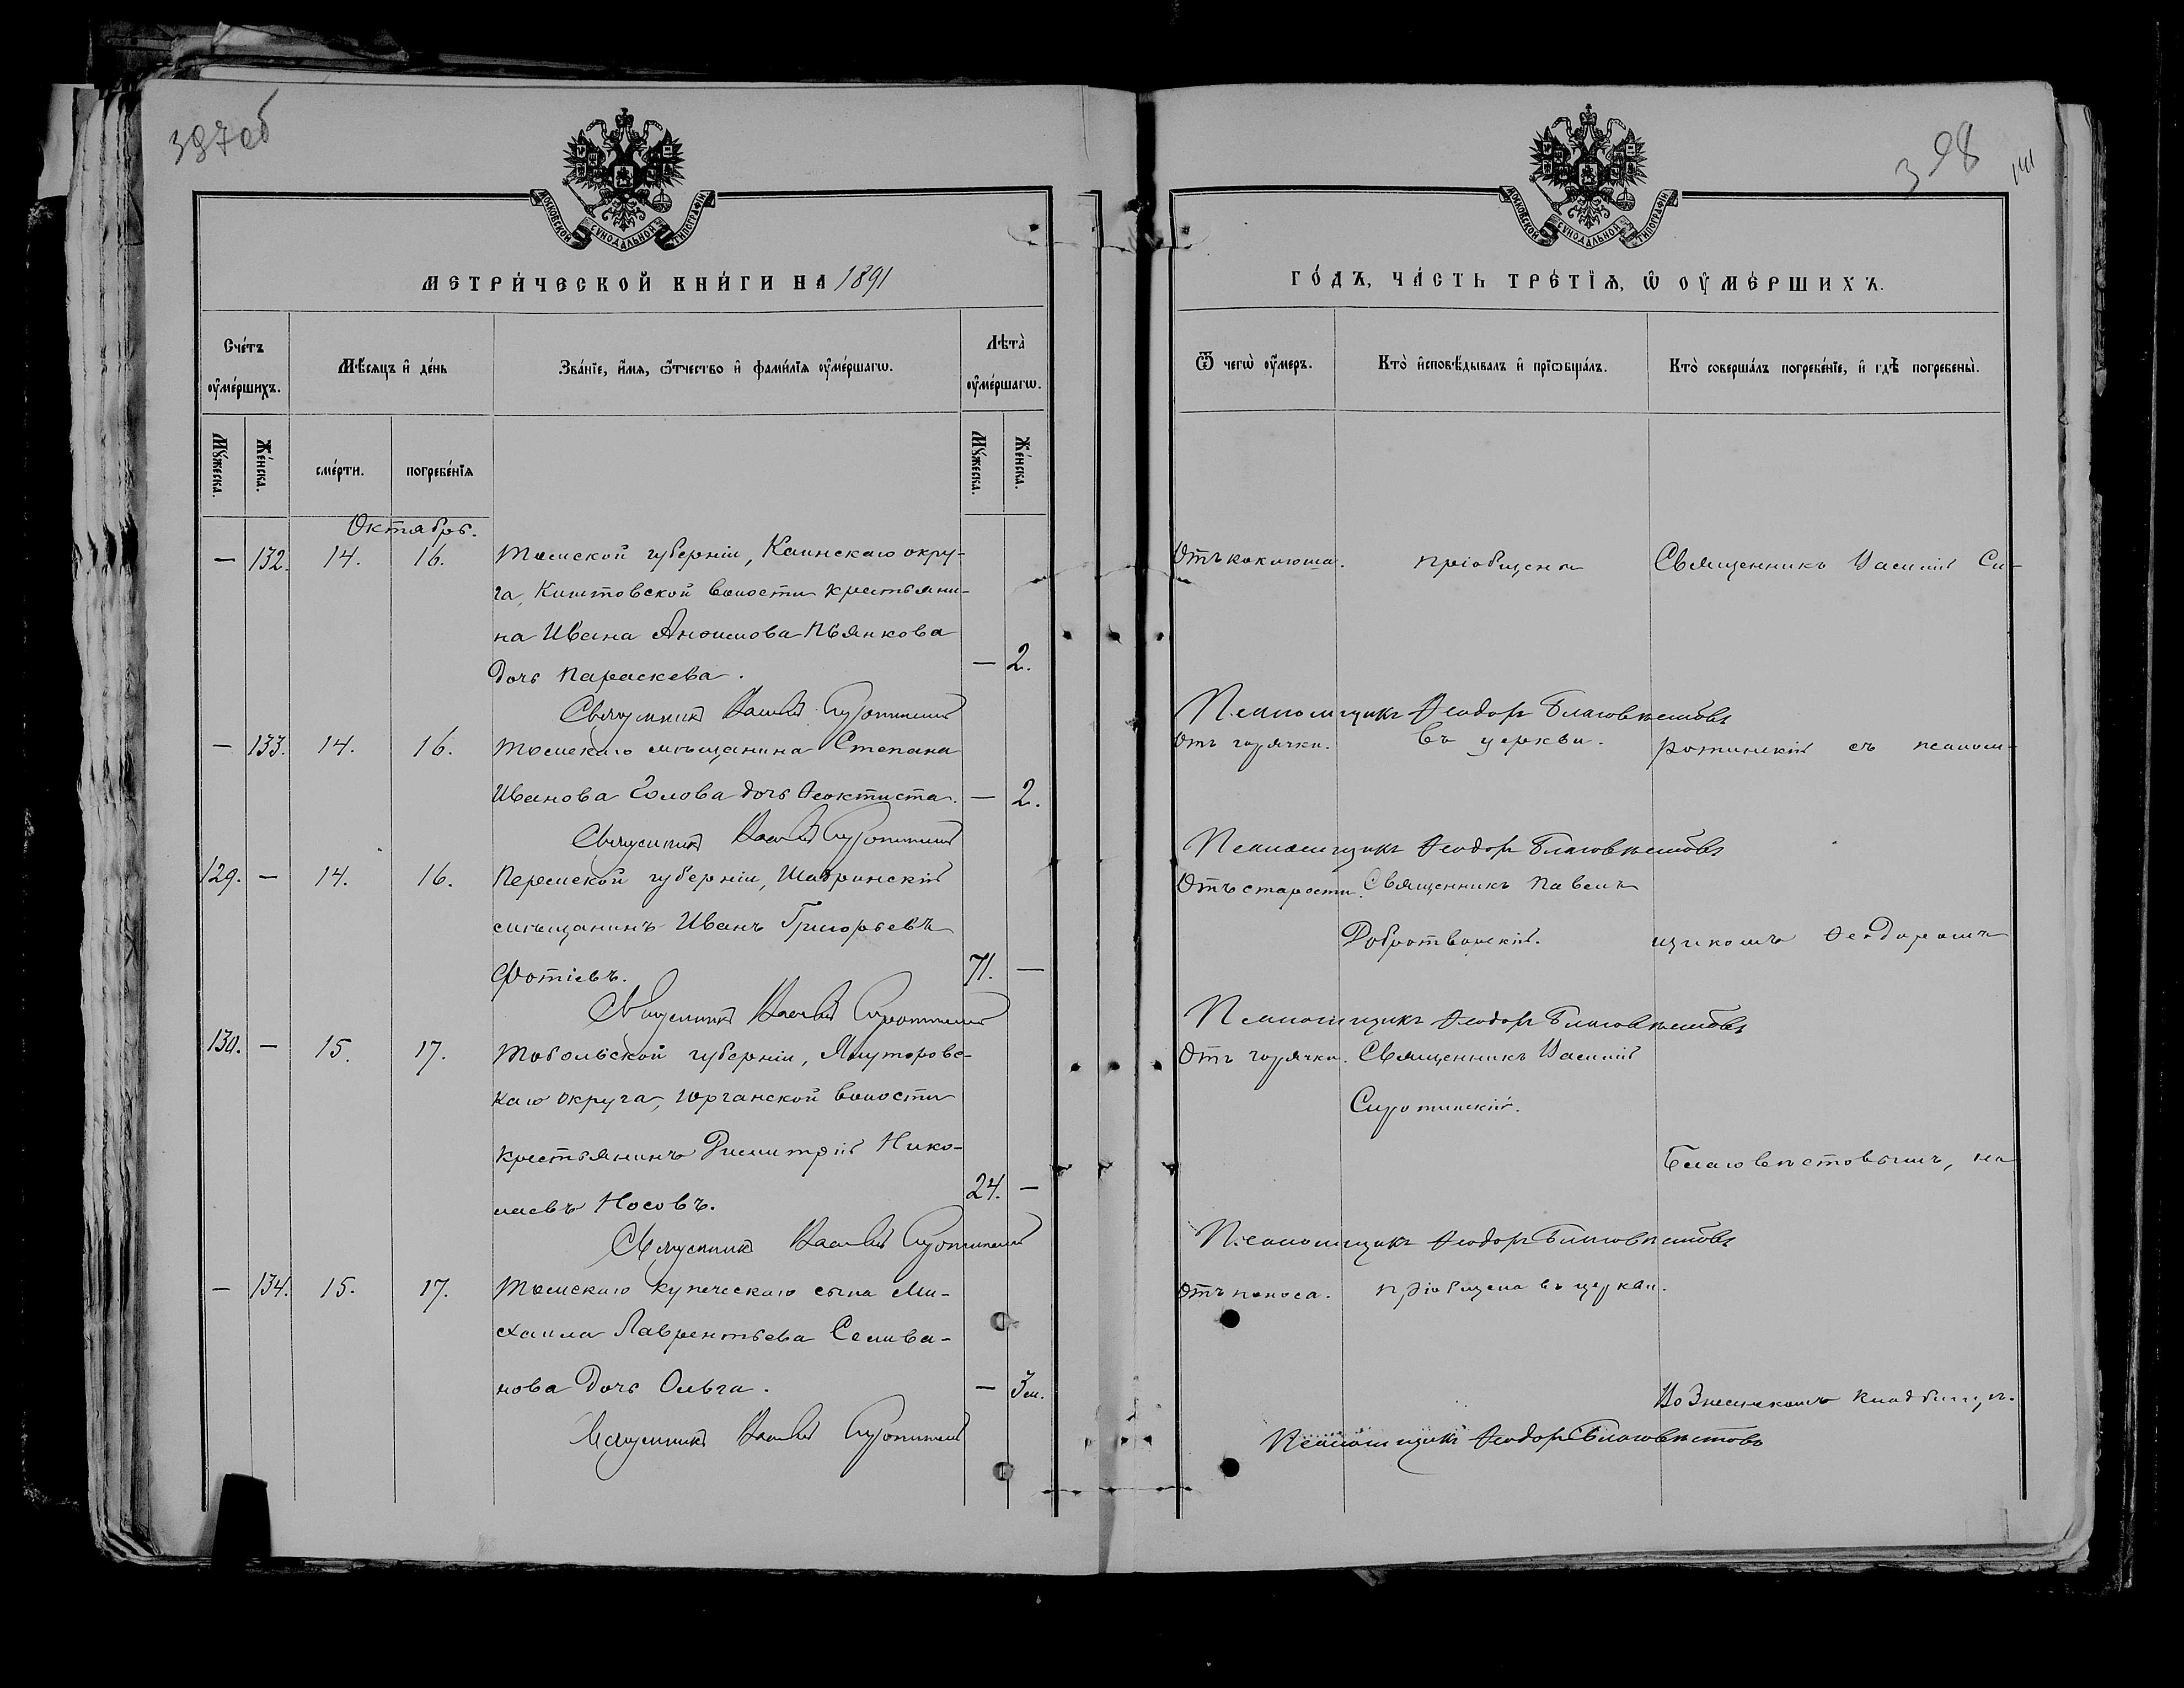 397об
МОСКОВСКОЙ СѴНОДАЛЬНОЙ ТИПОГРАФІИ
МЕТРИ́ЧЕСКОЙ КНИ́ГИ НА 1891
Сче́тъ ᲂу҆ме́ршихъ.
Мѣ́сяцъ и҆ де́нь
Зва́нїе, и҆́мя, ѻ҆́тчество и҆ фами́лїя ᲂу҆ме́ршагѡ.
Лѣта̀ ᲂу҆ме́ршагѡ.
Мꙋ́жеска.
Же́нска.
сме́рти.
погребе́нїѧ
Мꙋ́жеска.
Же́нска.
Октябрь.
— 132. 14. 16. Томской губерніи, Каинскаго окру-
га, Кыштовской волости крестьяни-
на Ивана Анѳимова Пьянкова
дочь Параскева. — 2.
Священникъ Василій Сиротинскій
— 133. 14. 16. Томскаго мѣщанина Степана
Иванова Голова дочь Ѳеоктиста. — 2.
Священникъ Василій Сиротинскій
129. — 14. 16. Пермской губерніи, Шадринскій
мѣщанинъ Иванъ Григорьевъ
Фотіевъ. 71. —
Священникъ Василій Сиротинскій
130. — 15. 17. Тобольской губерніи, Ялуторовс-
каго округа, Юрганской волости
крестьянинъ Димитрій Нико-
лаевъ Носовъ. 24. —
Священникъ Василій Сиротинскій
— 134. 15. 17. Томскаго купеческаго сына Ми-
хаила Лаврентьева Селива-
нова дочь Ольга. — 3 м.
Священникъ Василій Сиротинскій
398
141
МОСКОВСКОЙ СѴНОДАЛЬНОЙ ТИПОГРАФІИ
ГО́ДЪ, ЧА́СТЬ ТРЕ́ТЇѦ, Ѡ҆ ОУ҆МЕ́РШИХЪ.
Ѿ чегѡ̀ ᲂу҆́меръ.
Кто̀ и҆сповѣ́дывалъ и҆ прїѡбща́лъ.
Кто̀ соверша́лъ погребе́нїе, и҆ гдѣ̀ погребены̀.
Отъ коклюша. пріобщена Священникъ Василій Си-
Псаломщикъ Ѳеодоръ Благовѣстовъ
Отъ горячки. въ церкви. ротинскій съ псалом-
Псаломщикъ Ѳеодоръ Благовѣстовъ
Отъ старости. Священникъ Павелъ
Добротворскій. щикомъ Ѳеодоромъ
Псаломщикъ Ѳеодоръ Благовѣстовъ
Отъ горячки. Священникъ Василій
Сиротинскій.
Благовѣстовымъ, на
Псаломщикъ Ѳеодоръ Благовѣстовъ
Отъ поноса. пріобщена въ церкви.
Вознесенскомъ кладбищѣ.
Псаломщикъ Ѳеодоръ Благовѣстовъ